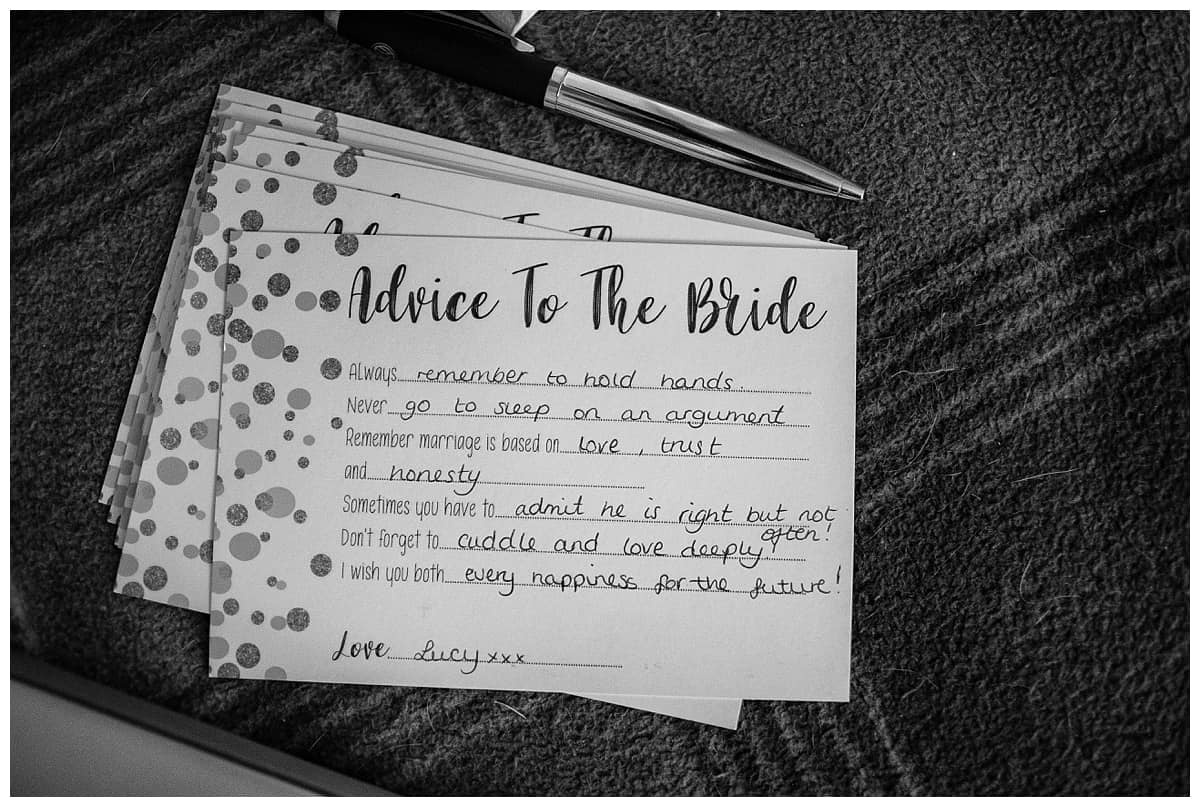 Advice To The Bride
Always remember to hold hands.
Never go to sleep on an argument
Remember marriage is based on love, trust
and honesty
Sometimes you have to admit he is right but not
often!
Don't forget to cuddle and love deeply!
I wish you both every happiness for the future!
Love Lucy xxx